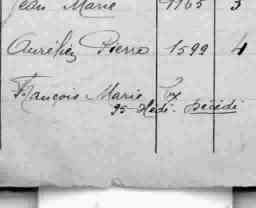 Jean Marie 1165 3
Aurélien Pierre 1599 4
François Marie
95 Décédé